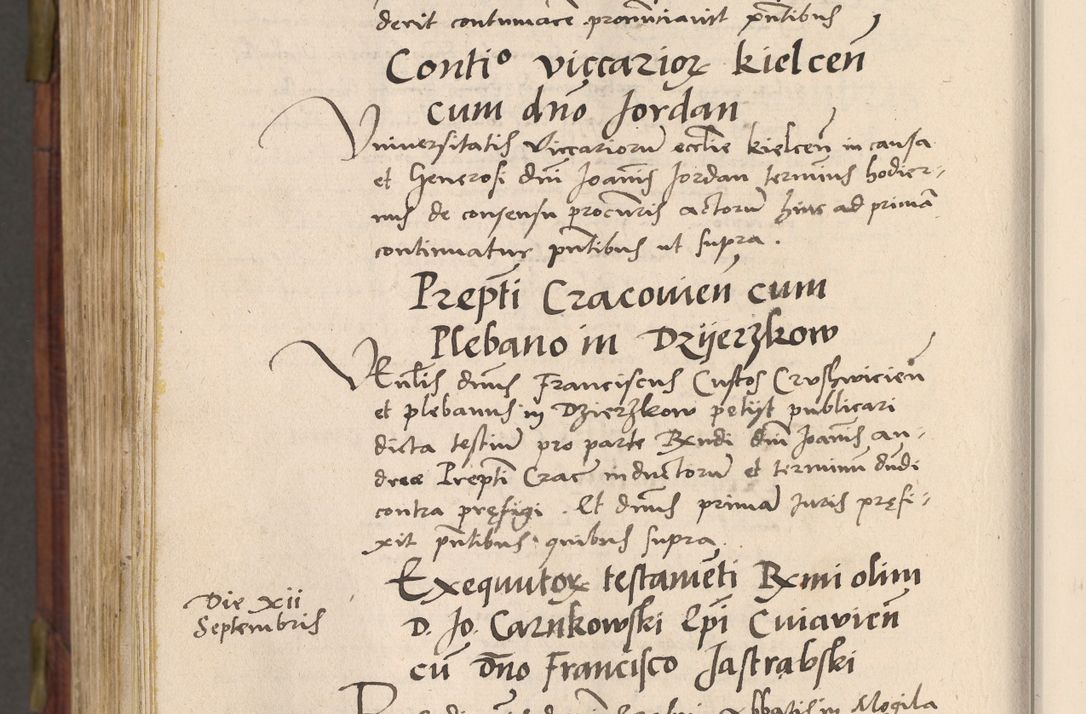 derit contumace pronu͞nciavit pn̄tibus
Conti⁰ viccarioꝝ kielcen̄
cum dn̄o Jordan
Vniuersitatis Viccariorū eccl̄ie kielcen̄ in causa
et Generosi dn̄i Joan̄is Jordan terminus hodier-
nus de consensu procur̄is actorū huic ad primā
continuatur pn̄tibus ut supra.
Prepti͞ Cracouien̄ cum
Plebano in Dzijerzkow
VEn̄lis dn̄us Franciscus Custos Crusshwicien̄
et plebanus in Dzierzkow petijt publicari
dicta testiū pro parte Rn̄di dn̄i Joan̄is an-
dreæ Prepti͞ Crac̄ inductorū et terminū dn̄di
contra pręfigi. Et dn̄us primā Juris pręfi-
xit pn̄tibus quibus supra
Exequutoꝝ testamēti Rmi olim
D. Jo. Carnkowski Ep̄i Cuiavien̄
cū dn̄o Francisco Jastrąbski
Die xii
Septembris
Abbatis in Mogila